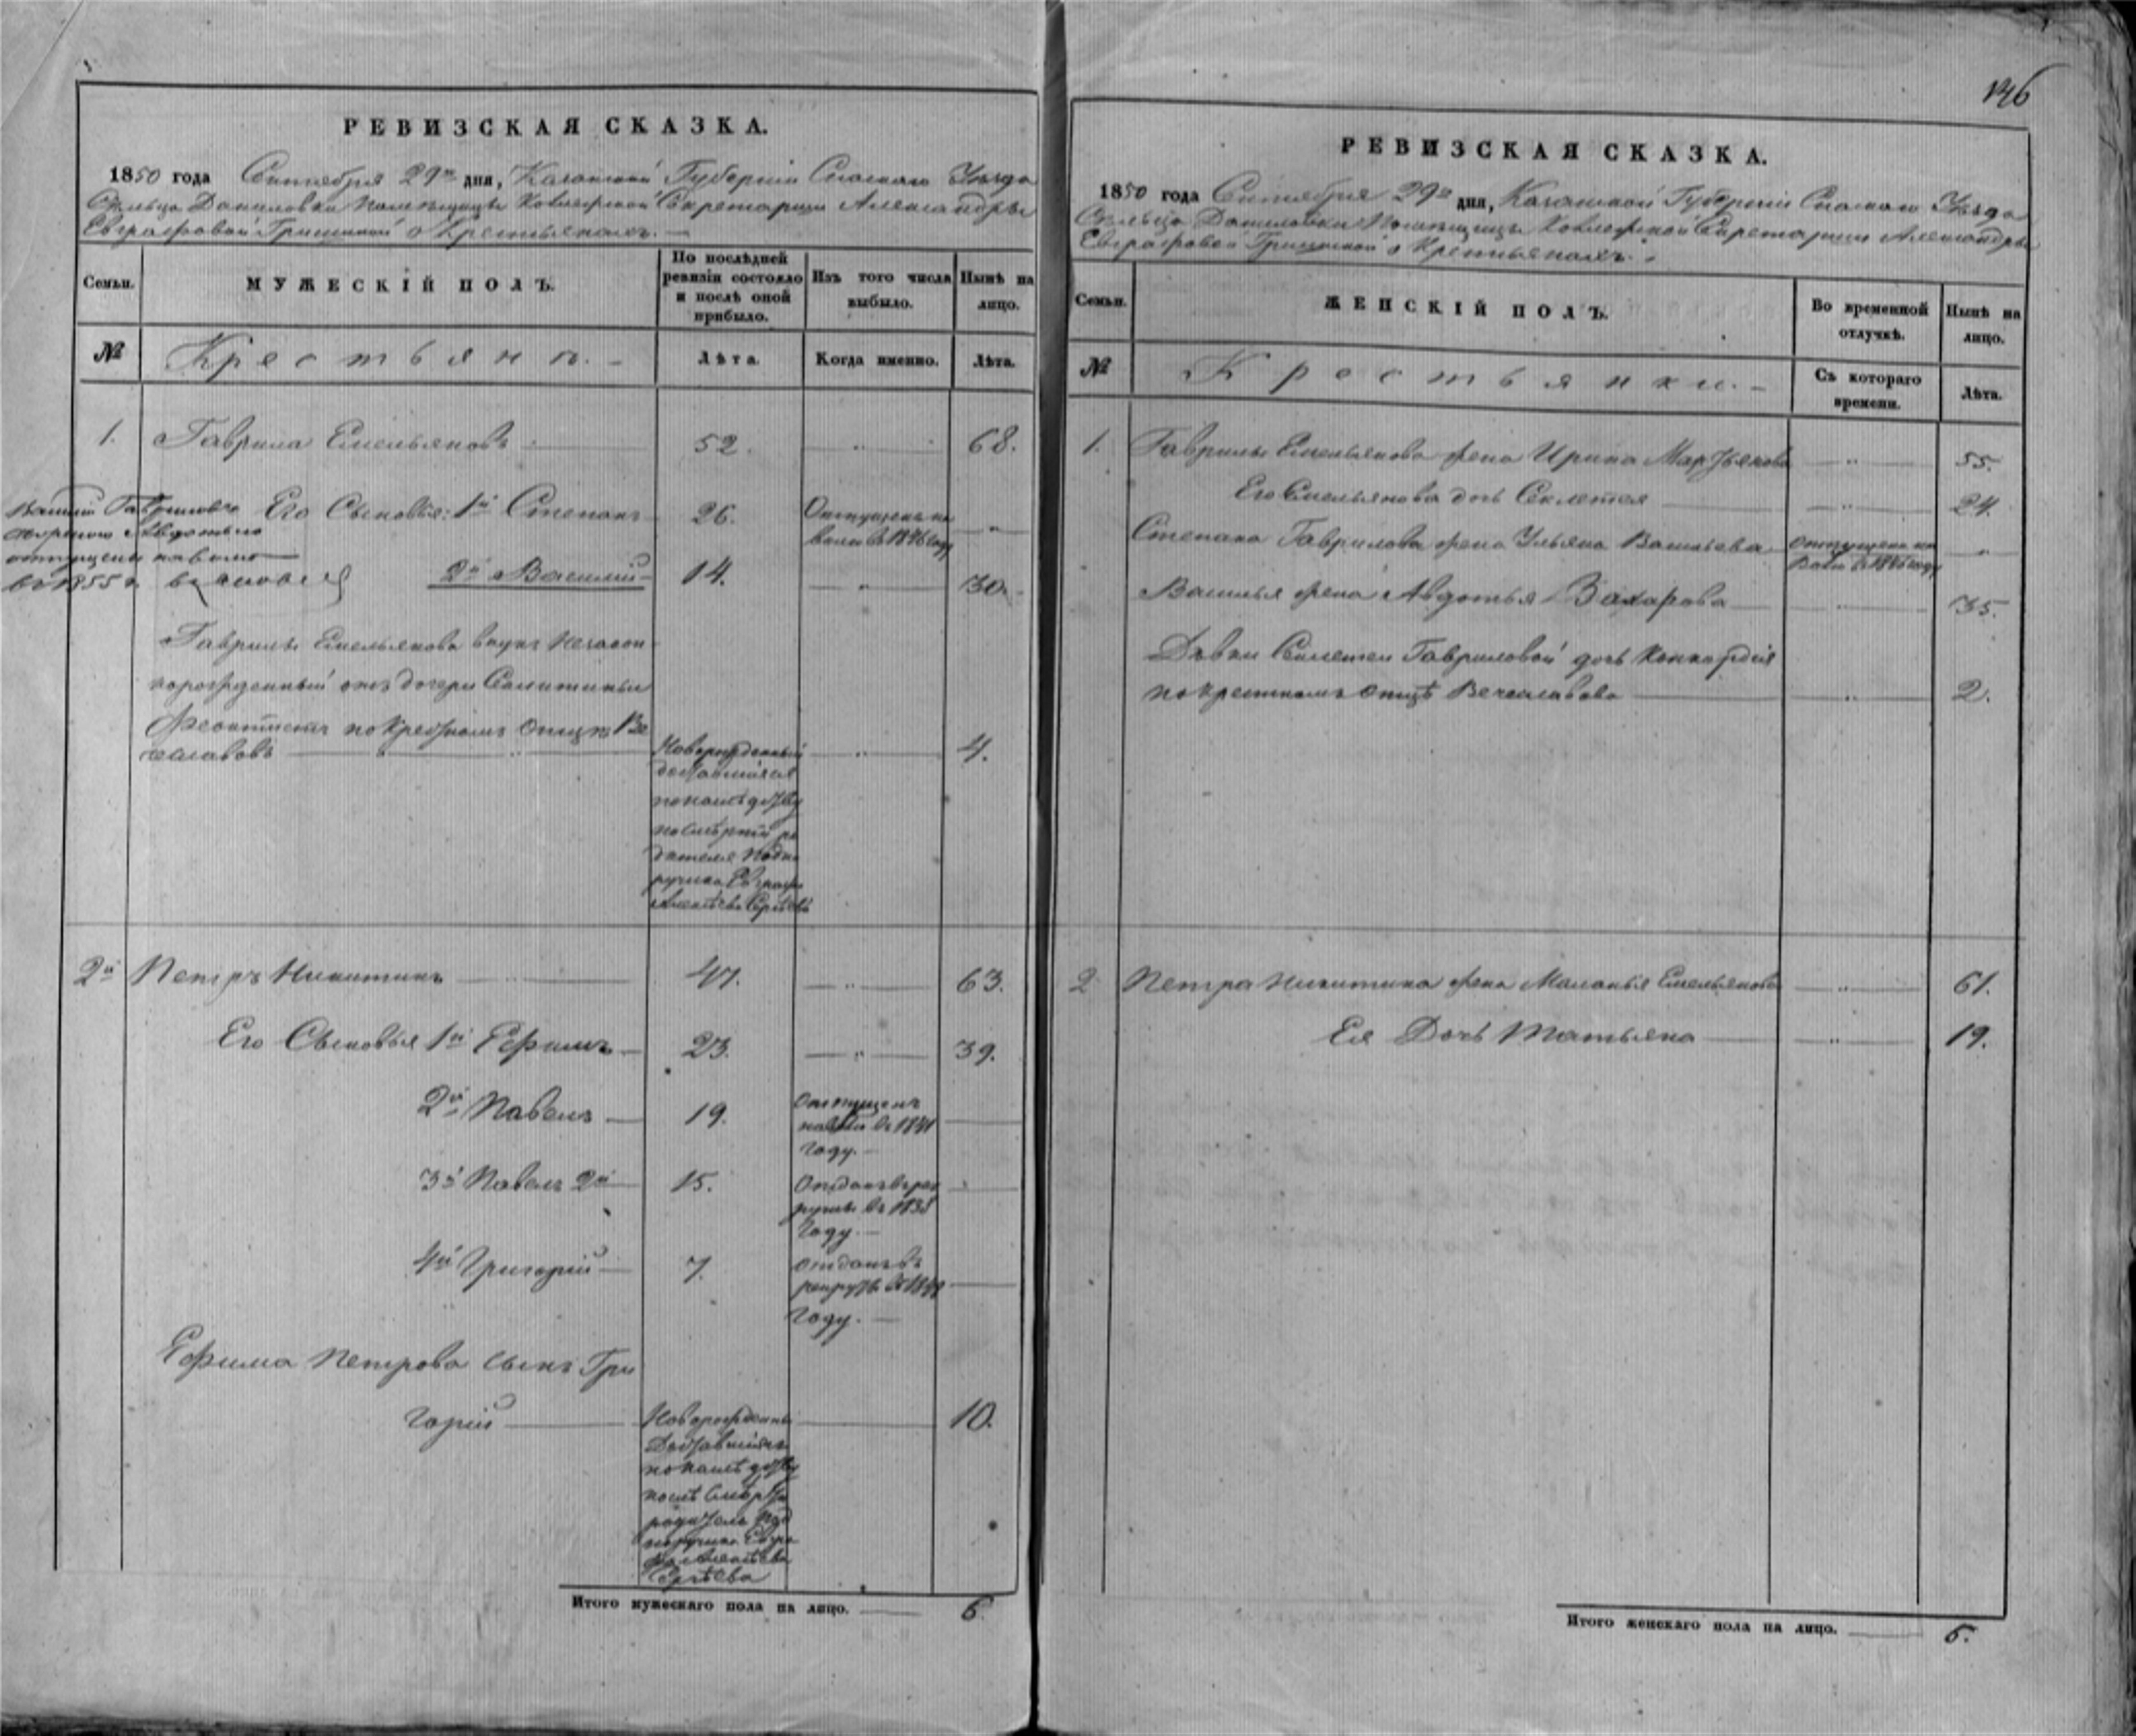 146
РЕВИЗСКАЯ СКАЗКА.
1850 года Сентября 29го дня, Казанской Губерніи Спаскаго Уѣзда
Сельца Даниловки помѣщицы Секретарши Александры
Евграфовой Гришиной о Крестьянахъ.
Семьи.
МУЖЕСКІЙ ПОЛЪ.
По послѣдней ревизіи состояло и послѣ оной прибыло.
Изъ того числа выбыло.
Нынѣ на лицо.
№
Крестьяне.
Лѣта.
Когда именно.
Лѣта.
1. Гаврила Емельяновъ 52. 68.
Его Сыновья: 1й Степанъ 26. Отпущенъ на
волю въ 1846 году
2й Василий 14. 30.
Василий Гавриловъ
с женою Авдотьею
отпущены на волю
в 1855 г.
Гаврилы Емельянова внукъ незакон
норожденный отъ дочери
Феоктистъ по крестномъ отцѣ Ве
чеславовъ 4.
Новорожденный
доставшійся
по наслѣдству
по смерти ро
дителя Подпо
ручика Евграфа
Сергѣева
2й Петръ Никитинъ 47. 63.
Его Сыновья 1й Ефимъ 23. 39.
2й Павелъ 19. Отпущенъ
на волю въ 1841
году.
3й Павелъ 2й 15. Отданъ в рек
руты въ 1838
году.
4й Григорій 7. Отданъ въ
рекруты въ 1849
году.
Ефима Петрова сынъ Гри
горій 10.
Новорожденный
Доставшійся
по наслѣдству
послѣ смерти
родителя Под
поручика Евгра
фа
Сергѣева
Итого мужескаго пола на лицо. 6.
РЕВИЗСКАЯ СКАЗКА.
1850 года Сентября 29го дня, Казанской Губерніи Спаскаго Уѣзда
Сельца Даниловки Помѣщицы Секретарши Александры
Евграфовой Гришиной о Крестьянахъ.
Семьи.
ЖЕНСКІЙ ПОЛЪ.
Во временной отлучкѣ.
Нынѣ на лицо.
№
Крестьянки.
Съ котораго времени.
Лѣта.
1. Гаврилы Емельянова жена Ирина 55.
Его Емельянова дочь Секлетея 24.
Степана Гаврилова жена Ульяна Васильева Отпущена на
волю въ 1846 году
Василья жена Авдотья Захарова 35.
Дѣвки Секлетеи Гавриловой дочь Конкордія
по крестномъ отцѣ Вечеславова 2.
2 Петра Никитина жена Маланья Емельянова 61.
Ея Дочь Татьяна 19.
Итого женскаго пола на лицо. 6.